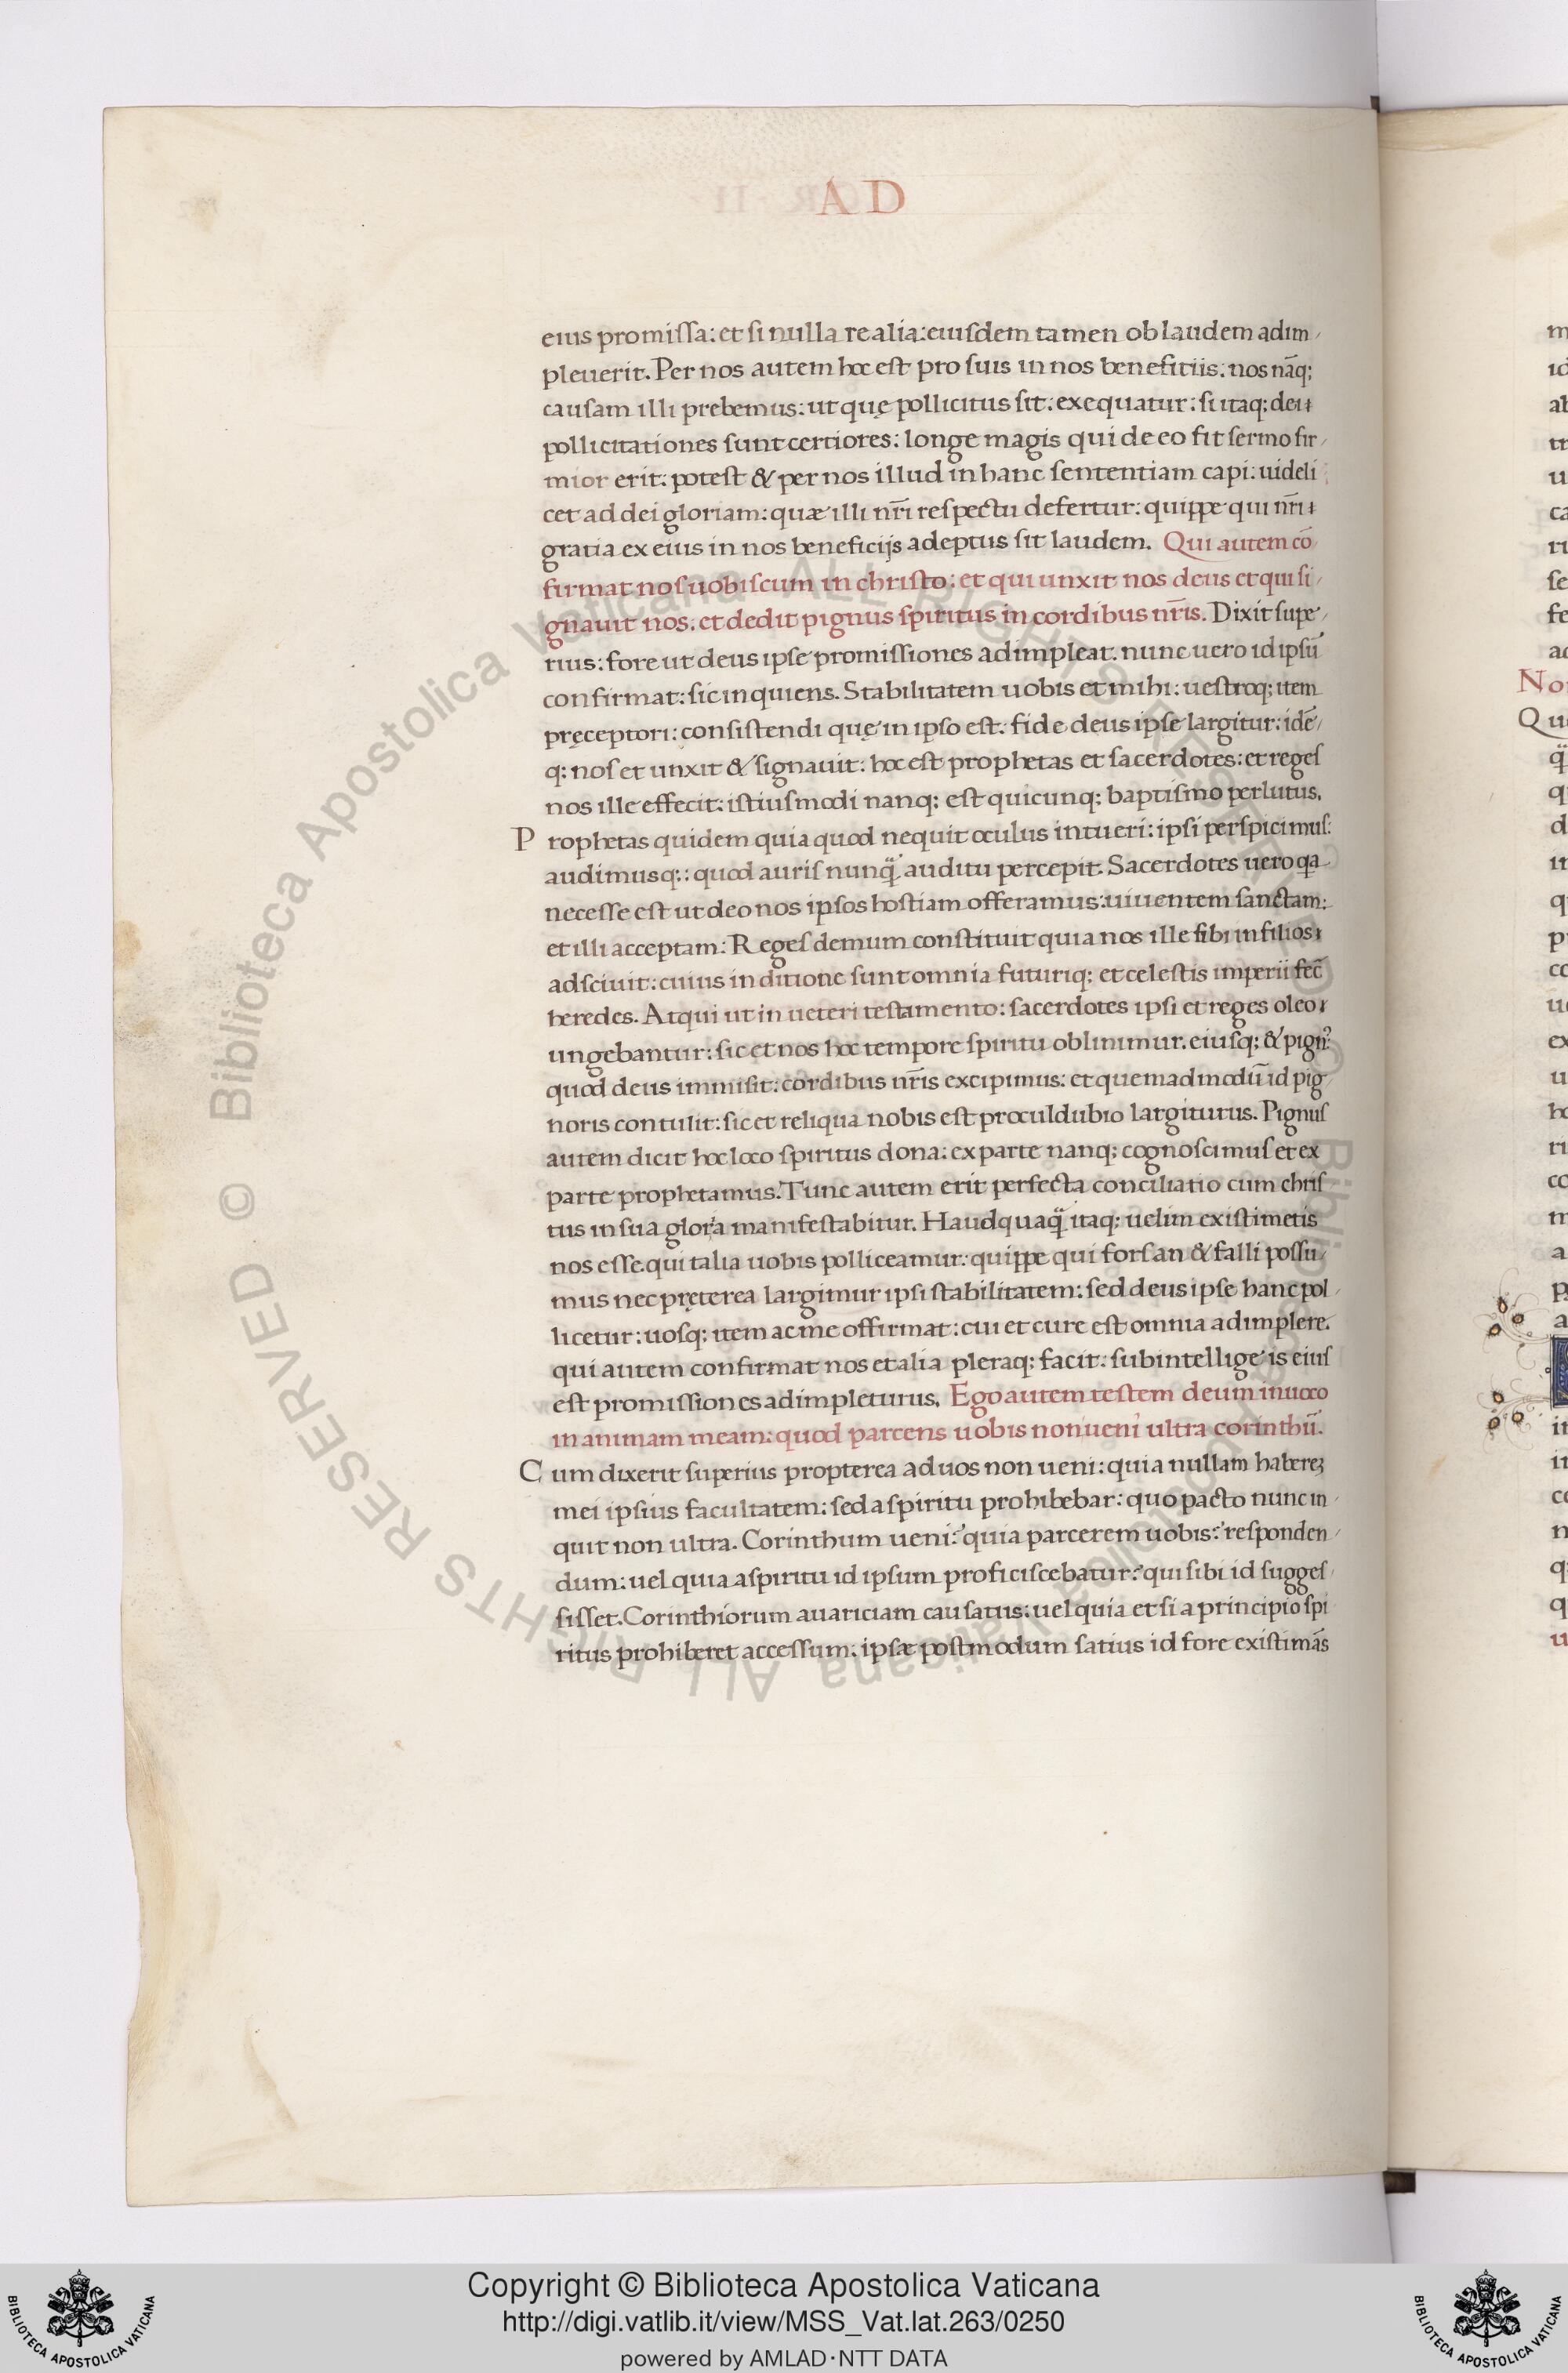 AD
eius promissa: et si nulla re alia: eiusdem tamen ob laudem adim/
pleuerit. Per nos autem hoc est pro suis in nos benefitiis: nos nāq;
causam illi prebemus: ut quę pollicitus sit: exequatur: si itaq; dei
pollicitationes sunt certiores: longe magis qui de eo fit sermo fir/
mior erit: potest & per nos illud in hanc sententiam capi: uideli
cet ad dei gloriam: quæ illi nr̄i respectu defertur: quippe qui nr̄i
gratia ex eius in nos beneficijs adeptus sit laudem. Qui autem cō
firmat nos uobiscum in christo: et qui unxit nos deus et qui si/
gnauit nos. et dedit pignus spiritus in cordibus nr̄is. Dixit supe/
rius: fore ut deus ipse promissiones adimpleat. nunc uero id ipsū
confirmat: sic inquiens. Stabilitatem uobis et mihi: uestroq; item
pręceptori: consistendi quę in ipso est. fide deus ipse largitur: idē/
q: nos et unxit & signauit: hoc est prophetas et sacerdotes: et reges
nos ille effecit: istiusmodi nanq; est quicunq; baptismo perlutus.
Prophetas quidem quia quod nequit oculus intueri: ipsi perspicimus:
audimusq;: quod auris nunq̄ auditu percepit. Sacerdotes uero qa
necesse est ut deo nos ipsos hostiam offeramus: uiuentem sanctam:
et illi acceptam: Reges demum constituit quia nos ille sibi in filios
adsciuit: cuius in ditione sunt omnia futuriq; et celestis imperii fec̄
heredes. Atqui ut in ueteri testamento: sacerdotes ipsi et reges oleo
ungebantur: sic et nos hoc tempore spiritu oblinimur. eiusq; & pign᾽
quod deus immisit: cordibus nr̄is excipimus: et quemadmodū id pig/
noris contulit: sic et reliqua nobis est proculdubio largiturus. Pignus
autem dicit hoc loco spiritus dona: ex parte nanq; cognoscimus et ex
parte prophetamus. Tunc autem erit perfecta conciliatio cum chris/
tus in sua gloria manifestabitur. Haudquaq̄ itaq; uelim existimetis
nos esse. qui talia uobis polliceamur: quippe qui forsan & falli possu/
mus nec pręterea largimur ipsi stabilitatem: sed deus ipse hanc pol/
licetur: uosq; item ac me offirmat: cui et cure est omnia adimplere.
qui autem confirmat nos et alia pleraq; facit: subintellige is eius
est promissiones adimpleturus. Ego autem testem deum inuoco
in animam meam: quod parcens uobis non ueni ultra corinthū.
Cum dixerit superius propterea ad uos non ueni: quia nullam haberez
mei ipsius facultatem: sed a spiritu prohibebar: quo pacto nunc in/
quit non ultra. Corinthum ueni: quia parcerem uobis: responden/
dum: uel quia a spiritu id ipsum proficiscebatur: qui sibi id sugges/
sisset. Corinthiorum auariciam causatus: uel quia et si a principio spi
ritus prohiberet accessum: ipsæ postmodum satius id fore existimās
Copyright © Biblioteca Apostolica Vaticana
http://digi.vatlib.it/view/MSS_Vat.lat.263/0250
powered by AMLAD·NTT DATA